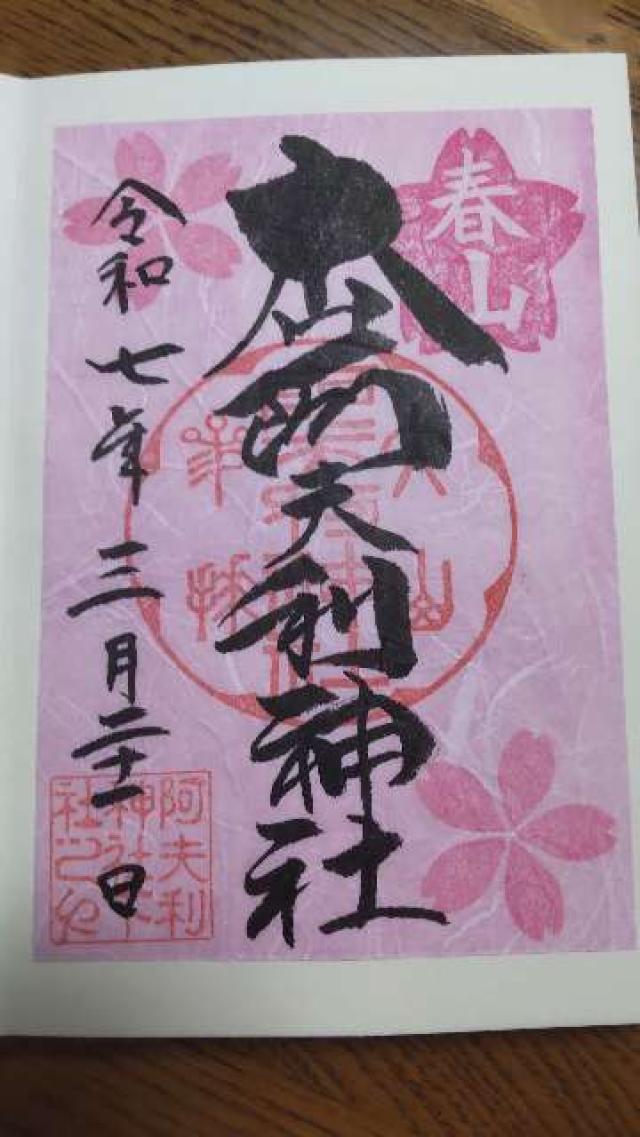 春山
大山阿夫利神社
令和七年三月二十一日
阿夫利
神社下
社之印